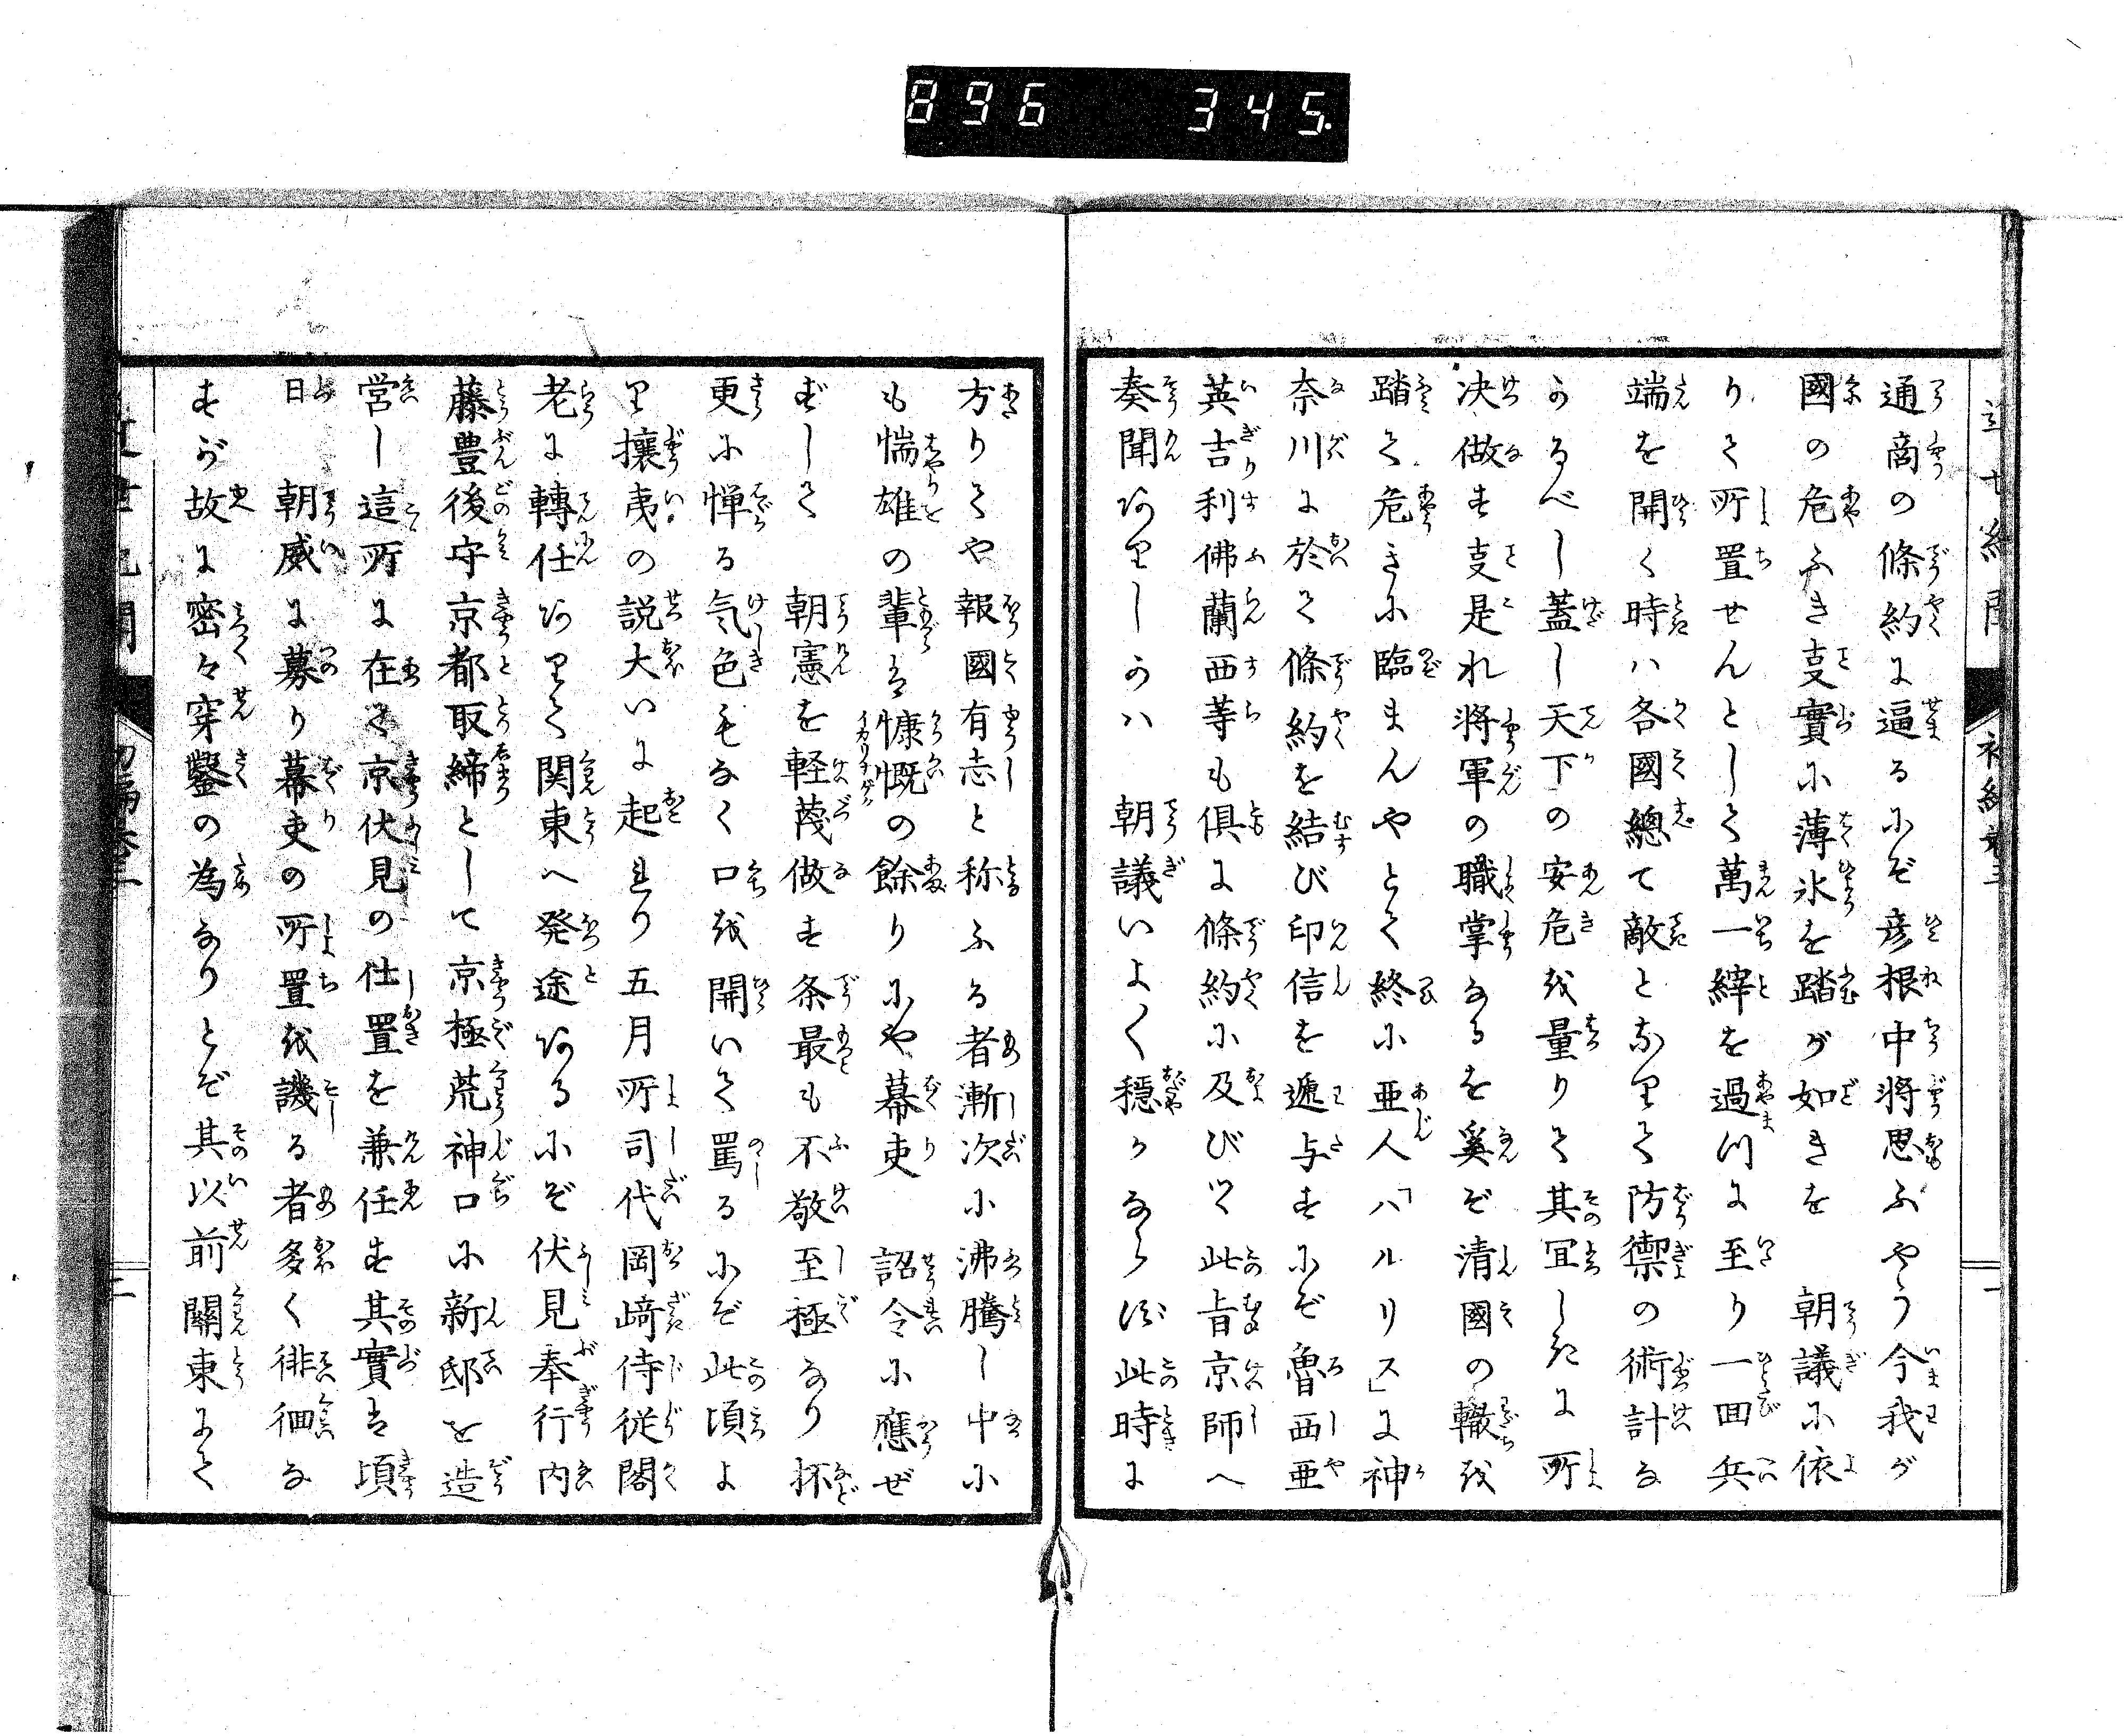 896 345.
通商の條約に逼るにぞ彦根中將思ふやう今我が
國の危ふき㕝實に薄氷を踏が如きを 朝議に依
りて所置せんとして萬一縡を過つに至り一回兵
端を開く時ハ各國總て敵となりて防禦の術計な
かるべし蓋し天下の安危を量りて其冝しきに所
决做す㕝是れ將軍の職掌なるを奚ぞ清國の轍を
踏て危きに臨まんやとて終に亜人「ハルリス」に神
奈川に於て條約を結び印信を遞与すにぞ魯西亜
英吉利佛蘭西等も俱に條約に及びつ此㫖京師へ
奏聞ありしかハ 朝議いよく穏かならず此時に
方りてや報國有志と称ふる者漸次に沸騰し中に
も惴雄の輩は慷慨の餘りにや幕吏 詔令に應ぜ
ずして 朝憲を軽蔑做す条最も不敬至極なり抔
更に憚る気色もなく口を開いて罵るにぞ此頃よ
り攘夷の説大いに起れり五月所司代岡﨑侍従閣
老に轉任ありて関東へ発途あるにぞ伏見奉行内
藤豊後守京都取締として京極荒神口に新邸を造
営し這所に在て京伏見の仕置を兼任す其實は頃
日 朝威に募り幕吏の所置を譏る者多く徘徊な
すが故に密々穿鑿の為なりとぞ其以前關東にて
二